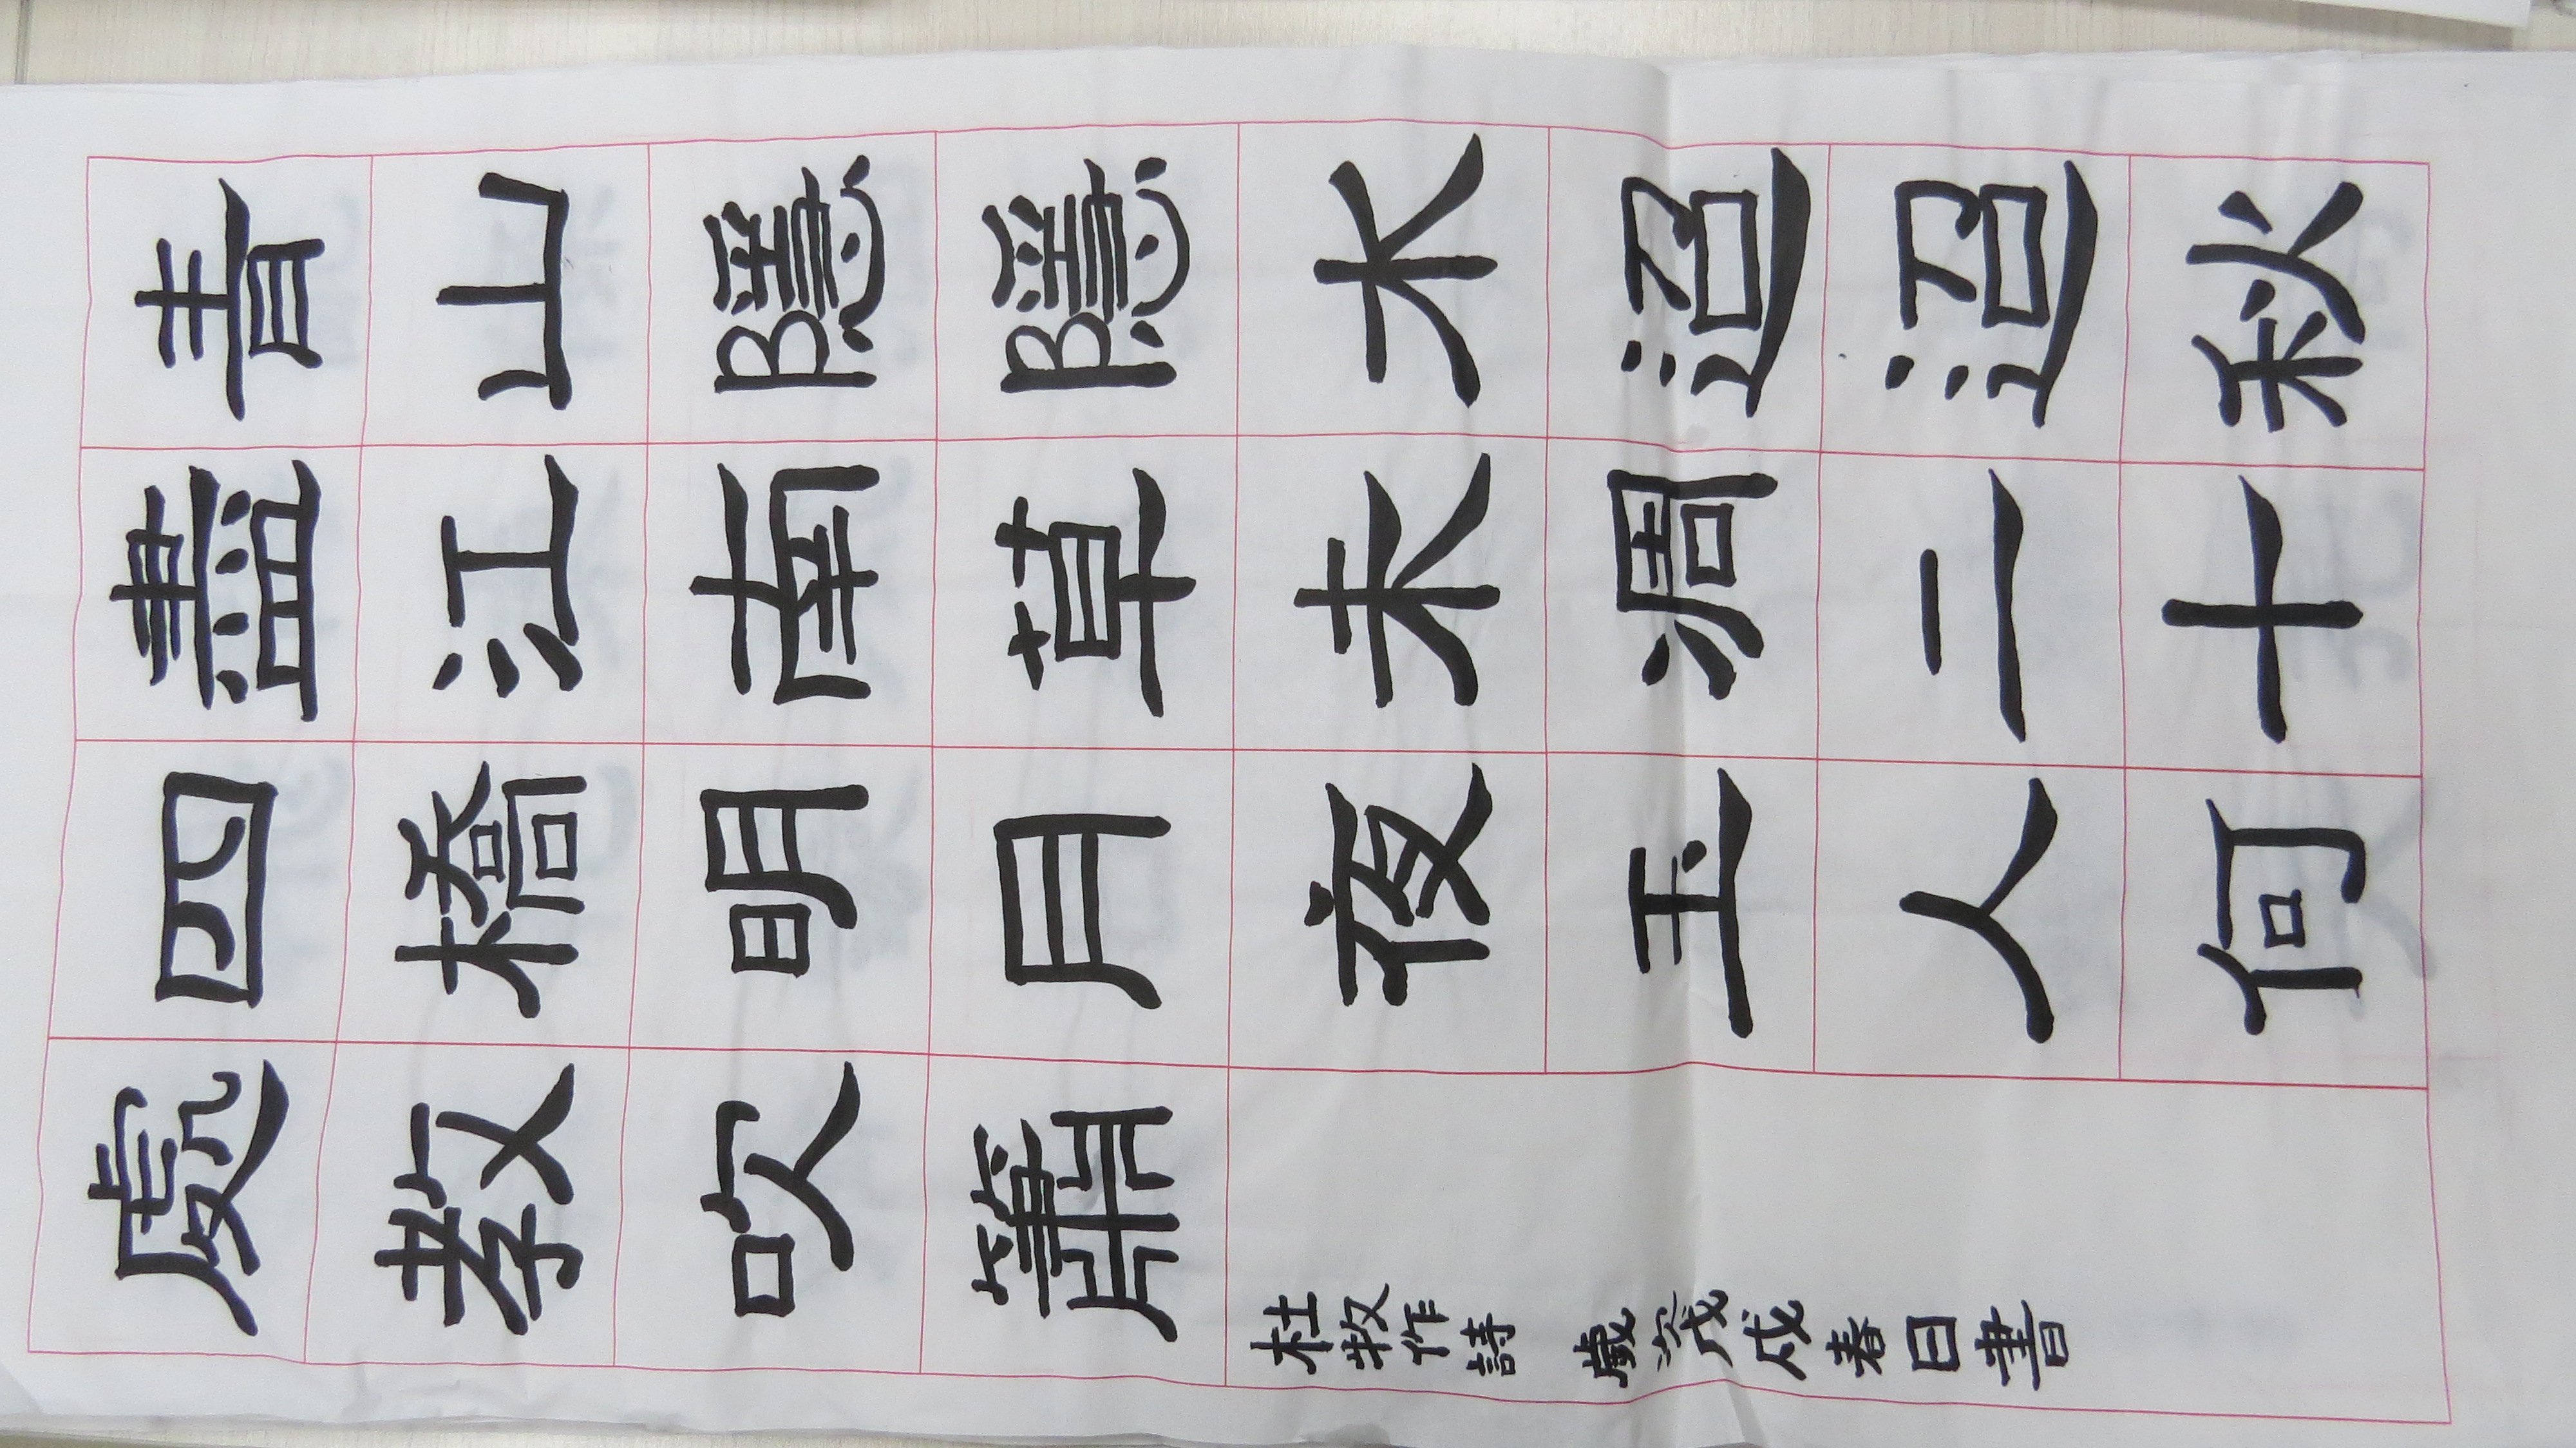 青山隱隱水迢迢秋
盡江南草未凋二十
四橋明月夜玉人何
處教吹簫
杜牧作詩 歲次戊戌春日書